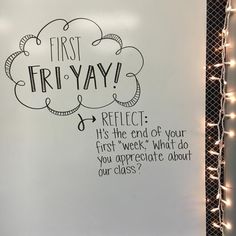 FIRST
FRI•YAY!
REFLECT:
It's the end of your
first "week." What do
you appreciate about
our class?